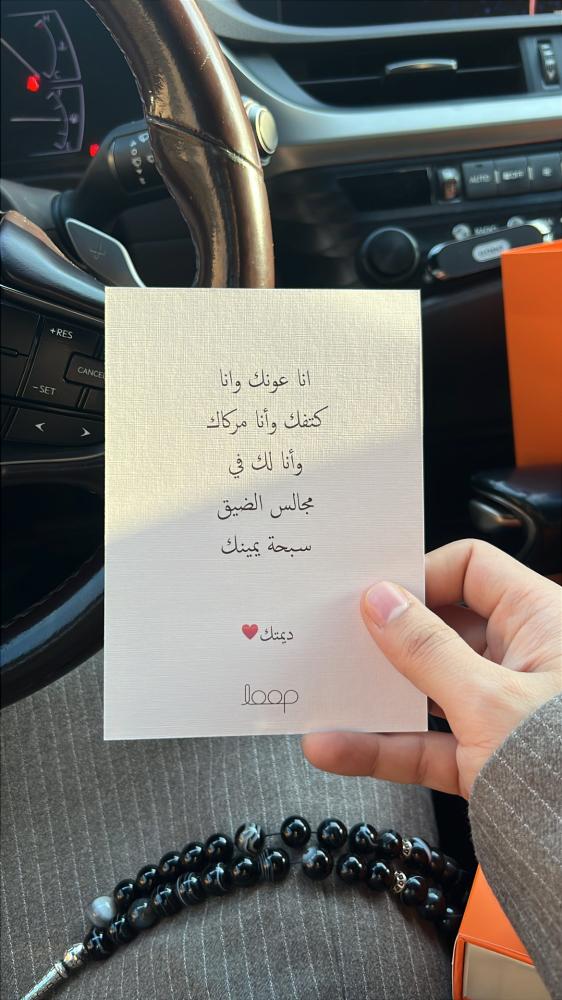 +RES
CANCEL
-SET
AUTO
انا عونك وانا
كتفك وأنا مركاك
وأنا لك في
مجالس الضيق
سبحة يمينك
ديمتك❤️
loop